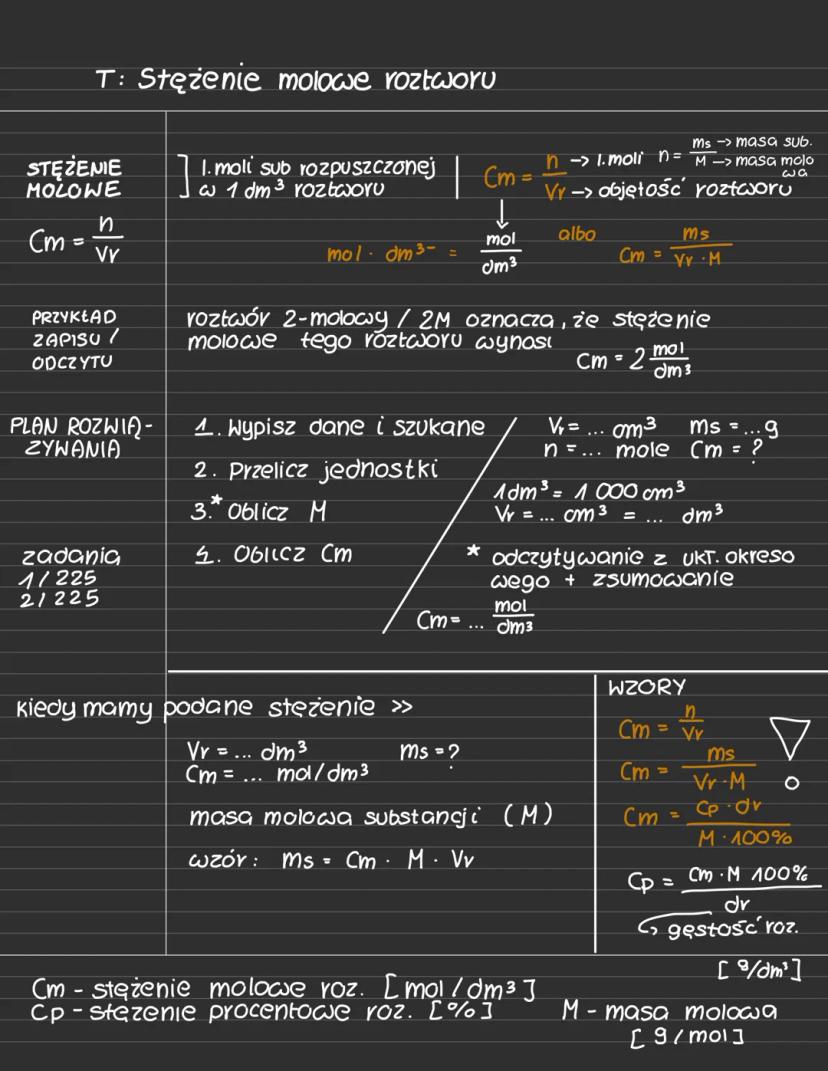 T: Stężenie molowe roztworu
STĘŻENIE
MOLOWE
Cm = n / Vr
l. moli sub rozpuszczonej
w 1 dm³ roztworu
Cm = n / Vr
n -> l. moli
Vr -> objętość roztworu
n = ms / M
ms -> masa sub.
M -> masa molo
wa
mol · dm³⁻ = mol / dm³
albo
Cm = ms / Vr · M
PRZYKŁAD
ZAPISU /
ODCZYTU
roztwór 2-molowy / 2M oznacza, że stężenie
molowe tego roztworu wynosi
Cm = 2 mol / dm³
PLAN ROZWIĄ-
ZYWANIA
1. Wypisz dane i szukane
2. Przelicz jednostki
3.* Oblicz M
4. Oblicz Cm
Vr = ... cm³ ms = ... g
n = ... mole Cm = ?
1dm³ = 1 000 cm³
Vr = ... cm³ = ... dm³
* odczytywanie z ukł. okreso
wego + zsumowanie
Cm = ... mol / dm³
zadania
1/225
2/225
kiedy mamy podane stężenie >>
Vr = ... dm³ ms = ?
Cm = ... mol/dm³
masa molowa substancji (M)
wzór: ms = Cm · M · Vr
WZORY
Cm = n / Vr
Cm = ms / Vr · M
Cm = Cp · dr / M · 100%
Cp = Cm · M 100% / dr
gęstość roz.
[g/dm³]
Cm - stężenie molowe roz. [mol/dm³]
Cp - stężenie procentowe roz. [%]
M - masa molowa
[g/mol]